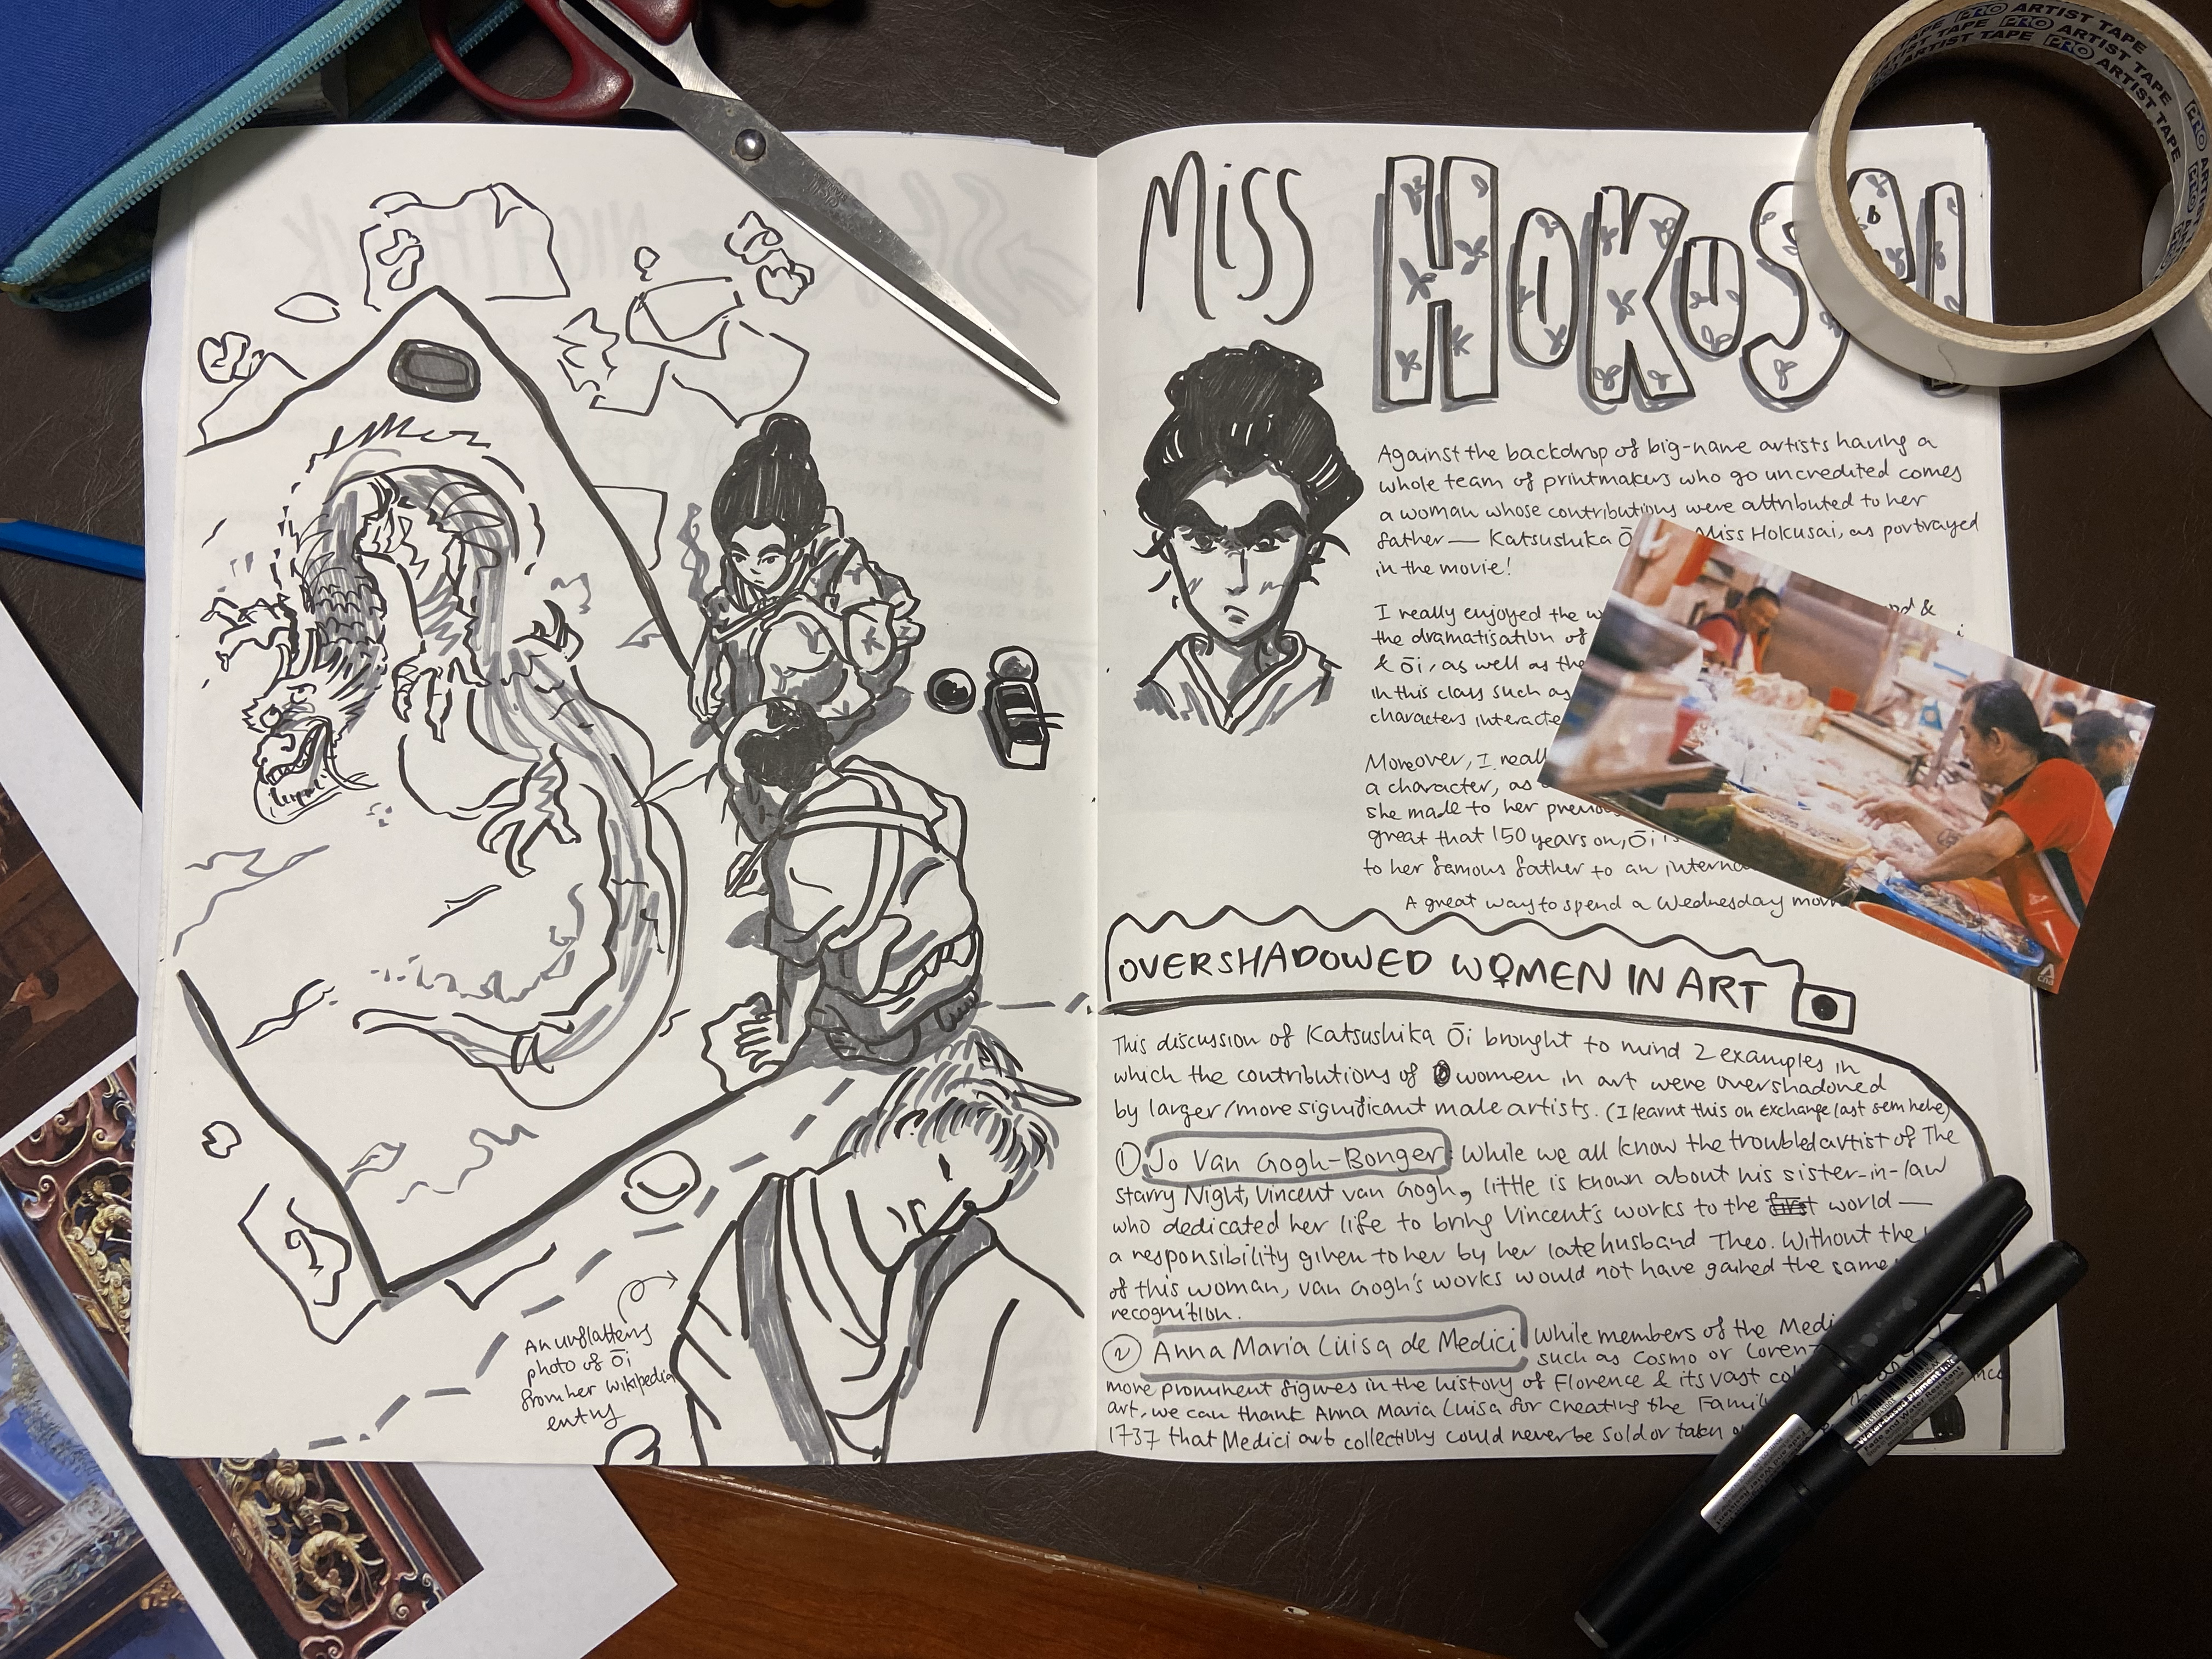 Miss HOKUSAI
Against the backdrop of big-name artists having a
whole team of printmakers who go uncredited comes
a woman whose contributions were attributed to her
father — Katsushika Ō Miss Hokusai, as portrayed
in the movie!
I really enjoyed the &
the dramatisation of
& Ōi, as well as the
in this class such as
characters interacte
Moreover, I reall
a character, as
she made to her previous
great that 150 years on, Ōi
to her famous father to an interna
A great way to spend a Wednesday
OVERSHADOWED WOMEN IN ART
This discussion of Katsushika Ōi brought to mind 2 examples in
which the contributions of women in art were overshadowed
by larger/more significant male artists. (I learnt this on Exchange last sem hehe)
① Jo Van Gogh-Bonger: While we all know the troubled artist of The
Starry Night, Vincent van Gogh, little is known about his sister-in-law
who dedicated her life to bring Vincent's works to the world —
a responsibility given to her by her late husband Theo. Without the
of this woman, Van Gogh's works would not have gained the same
recognition.
② Anna Maria Luisa de Medici While members of the Medi
such as Cosmo or Loren
more prominent figures in the history of Florence & its vast
art, we can thank Anna Maria Luisa for creating the Family
1737 that Medici art collections could never be sold or taken
An unflattering
photo of Ōi
from her Wikipedia
entry
PRO ARTIST TAPE
PRO ARTIST TAPE
Water-based Pigment Ink
Fade and Water Resistant